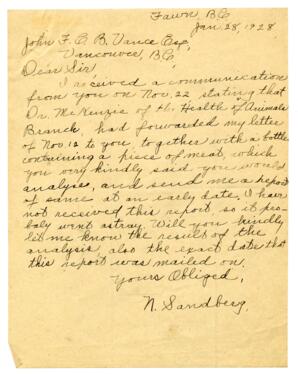 Fawn B.C.
Jan 28, 1928.
John F. C. B. Vance Esq.,
Vancouver, B.C.
Dear Sir
I received a communication
from you on Nov. 22 stating that
Dr. McKenzie of H. Health of Animals
Branch, had forwarded my letter
of Nov. 12 to you, together with a bottle
containing a piece of meat, which
you very kindly said you would
analyse, and send me a report
of same at an early date. I have
not received this report, so it pro-
baly went astray. Will you kindly
let me know the results of the
analysis, also the exact date that
this report was mailed on.
Yours Obliged,
N. Sandberg.